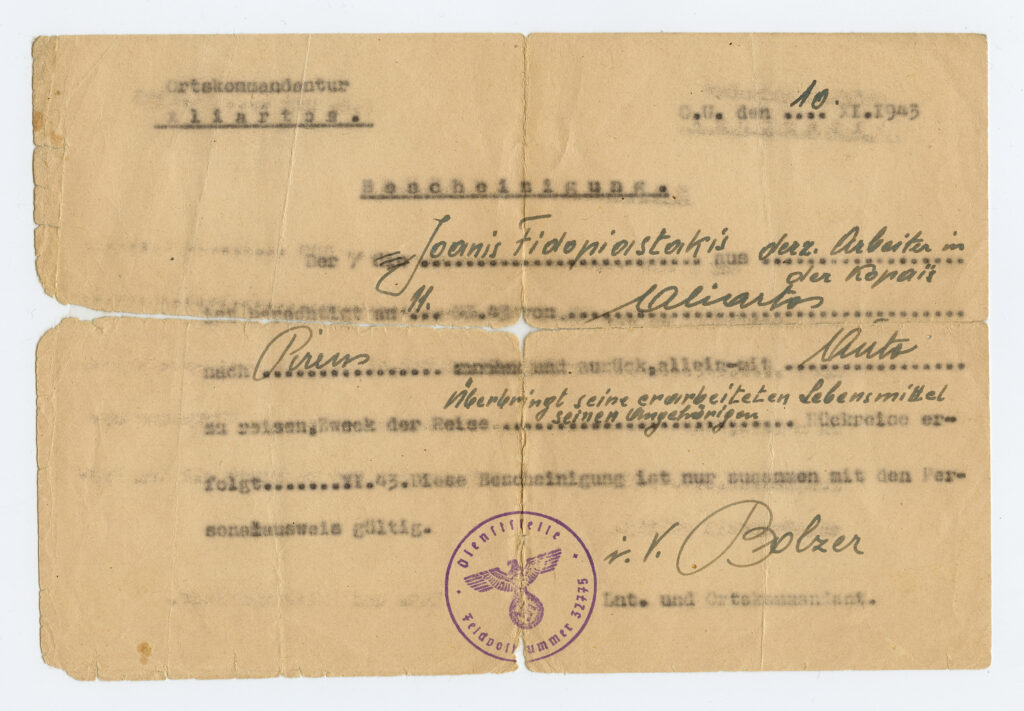 Ortskommandantur
Aliartos.
O.U. den 10. XI.1943
Bescheinigung.
Der / die Joanis Fidopiastakis aus derz. Arbeiter in
der Kopais
ist berechtigt am 11. XI.43 von Aliartos
nach Pireus und zurück,allein-mit Auto
Überbringt seine erarbeiteten Lebensmittel
seinen Angehörigen
zu reisen,Zweck der Reise ........ Rückreise er-
folgt........XI.43.Diese Bescheinigung ist nur zusammen mit den Per-
sonalausweis gültig.
i.V. Bolzer
Lnt. und Ortskommandant.
Dienststelle
Feldpostnummer 32775